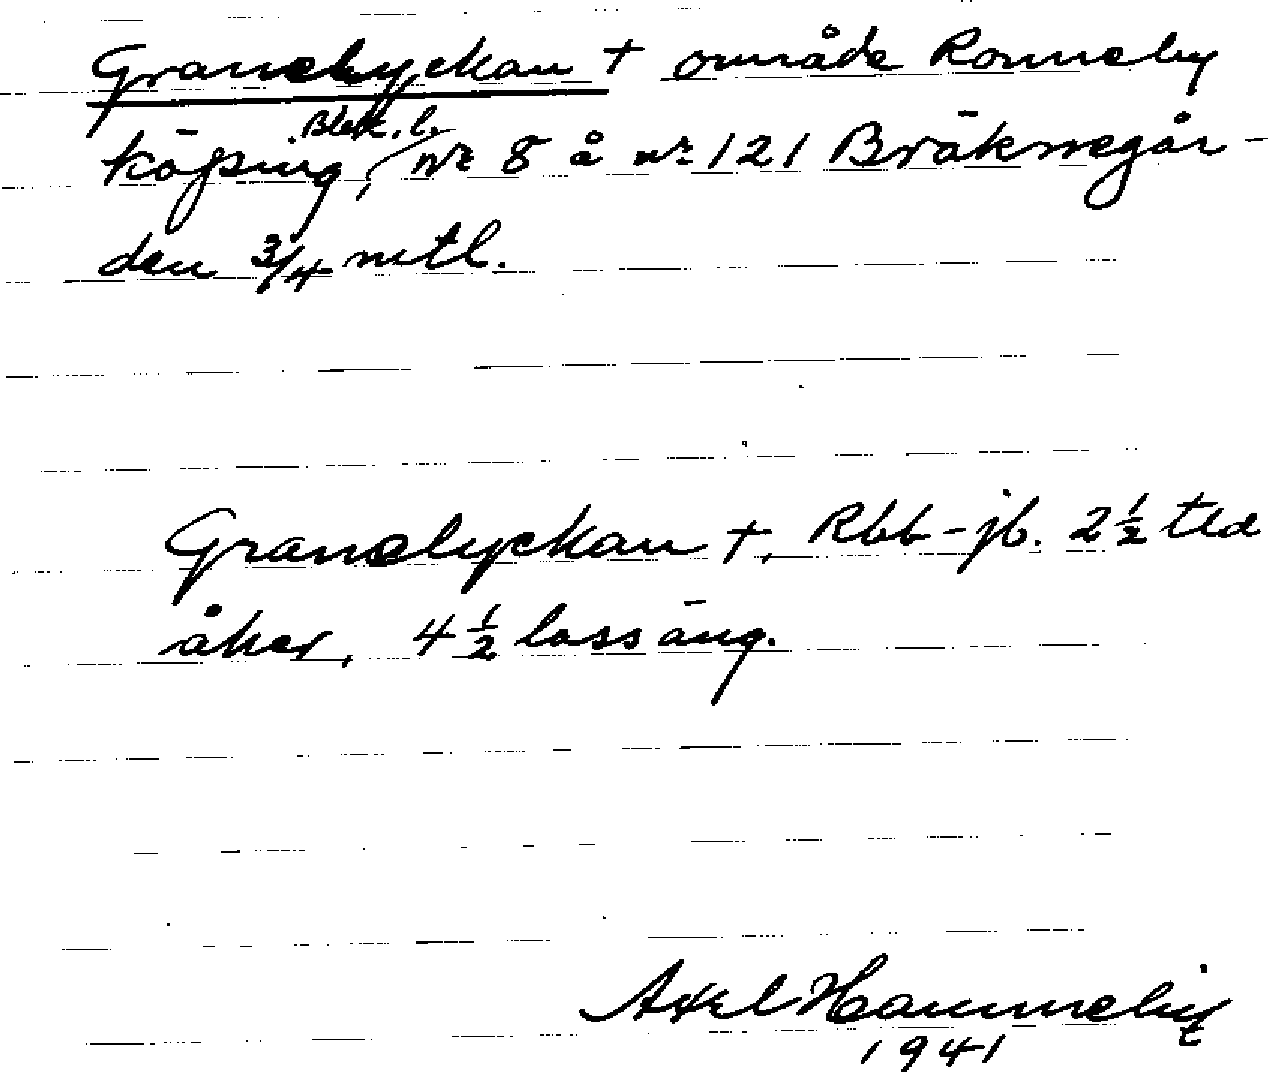 Granelyckan + område Ronneby
Blek. l.
köping, nr 8 å nr 121 Bräknegår-
den 3/4 mtl.
Granelyckan +, Rbb-jb. 2 1/2 tld
åker, 4 1/2 lass äng.
Axel Hammelin
1941